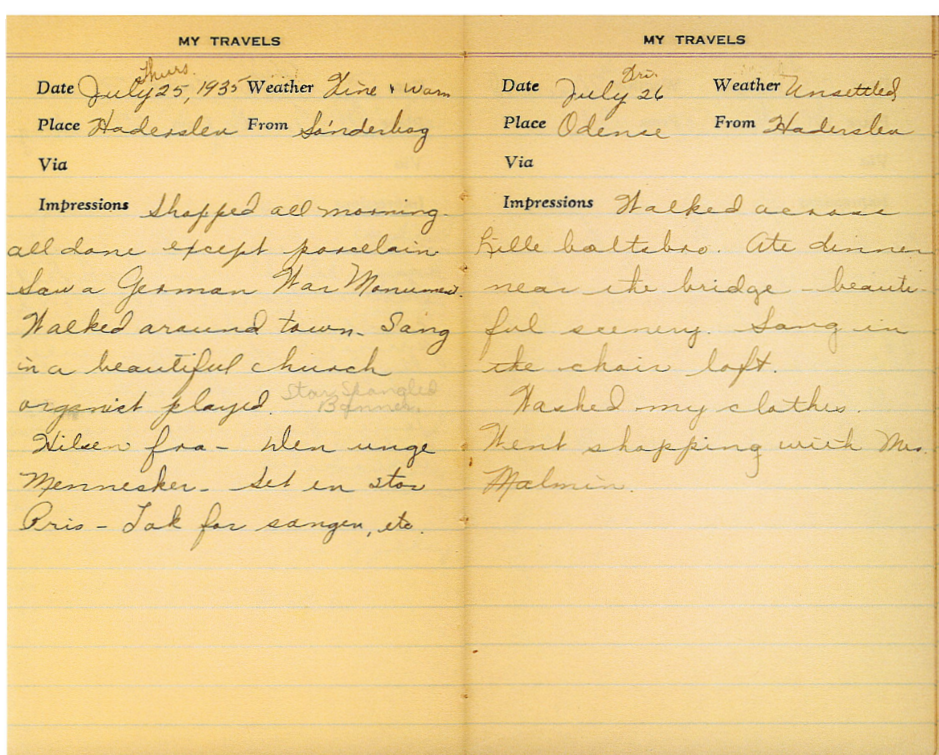 MY TRAVELS
Thurs.
Date July 25, 1935 Weather Fine & Warm
Place Haderslev From Sónderborg
Via
Impressions Shopped all morning.
all done except porcelain
Saw a German War Monument.
Walked around town. Sang
in a beautiful church
organist played. Star Spangled
Banner.
Hilsen fra – den unge
Mennesker – Set en stor
Pris – Tak for sangen, etc.
MY TRAVELS
Fri.
Date July 26 Weather Unsettled
Place Odense From Haderslev
Via
Impressions Walked across
Lille bæltsbro. Ate dinner
near the bridge – beauti-
ful scenery. Sang in
the choir loft.
Washed my clothes.
Went shopping with Mrs.
Malmin.